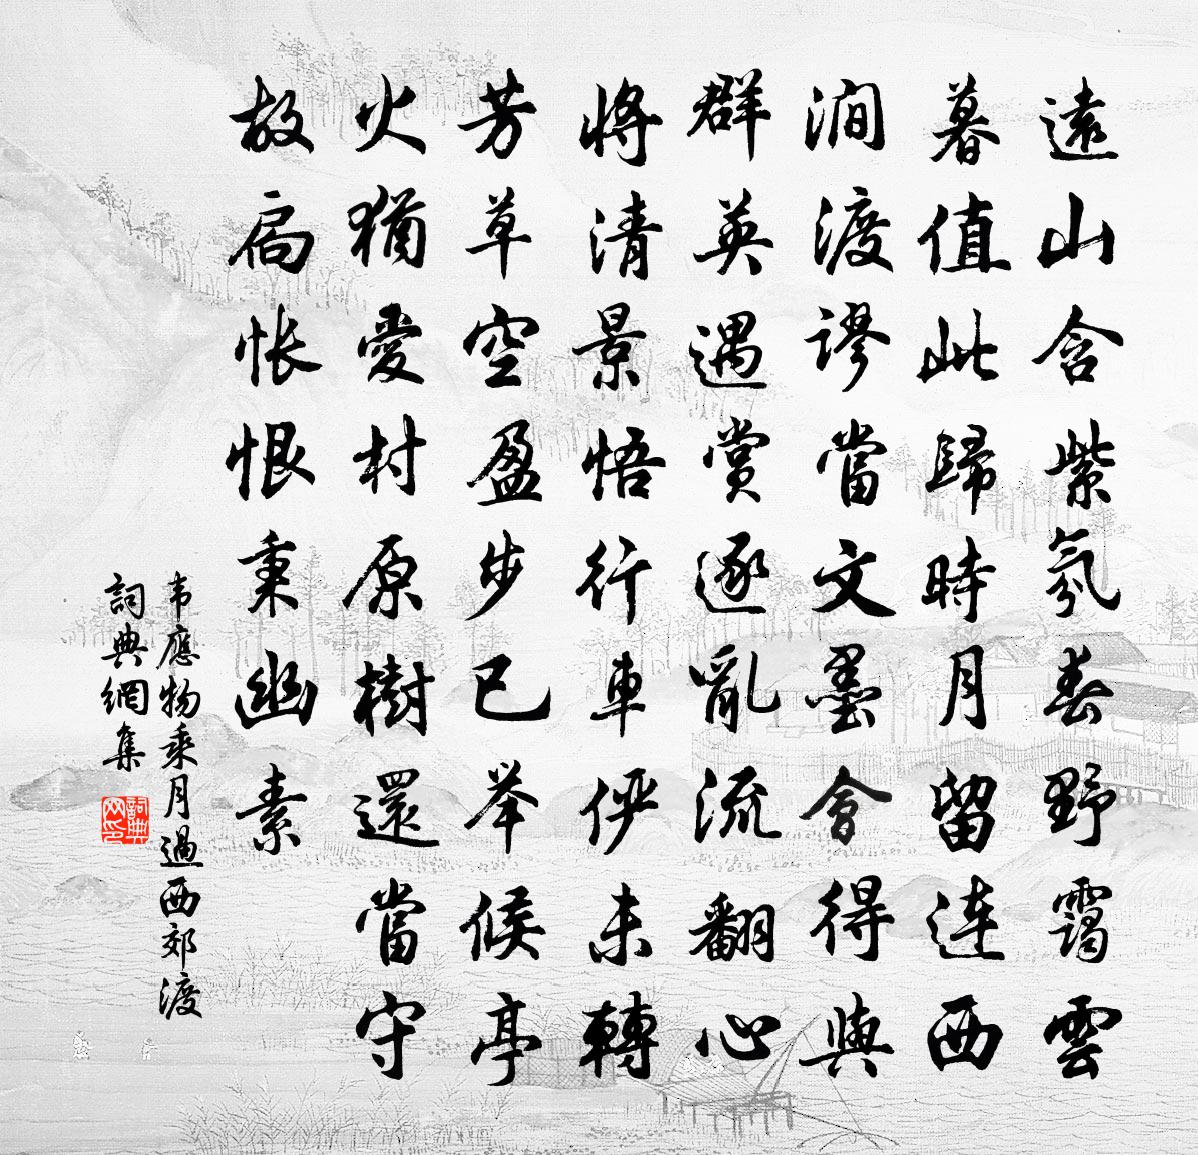 遠山含紫氛春野靄雲
暮值此歸時月留連西
澗渡謬當文墨會得與
群英遇賞逐亂流翻心
將清景悟行車儼未轉
芳草空盈步已舉候亭
火猶愛村原樹還當守
故扃悵恨秉幽素
韦應物乘月過西郊渡
詞典網集
詞典
网印